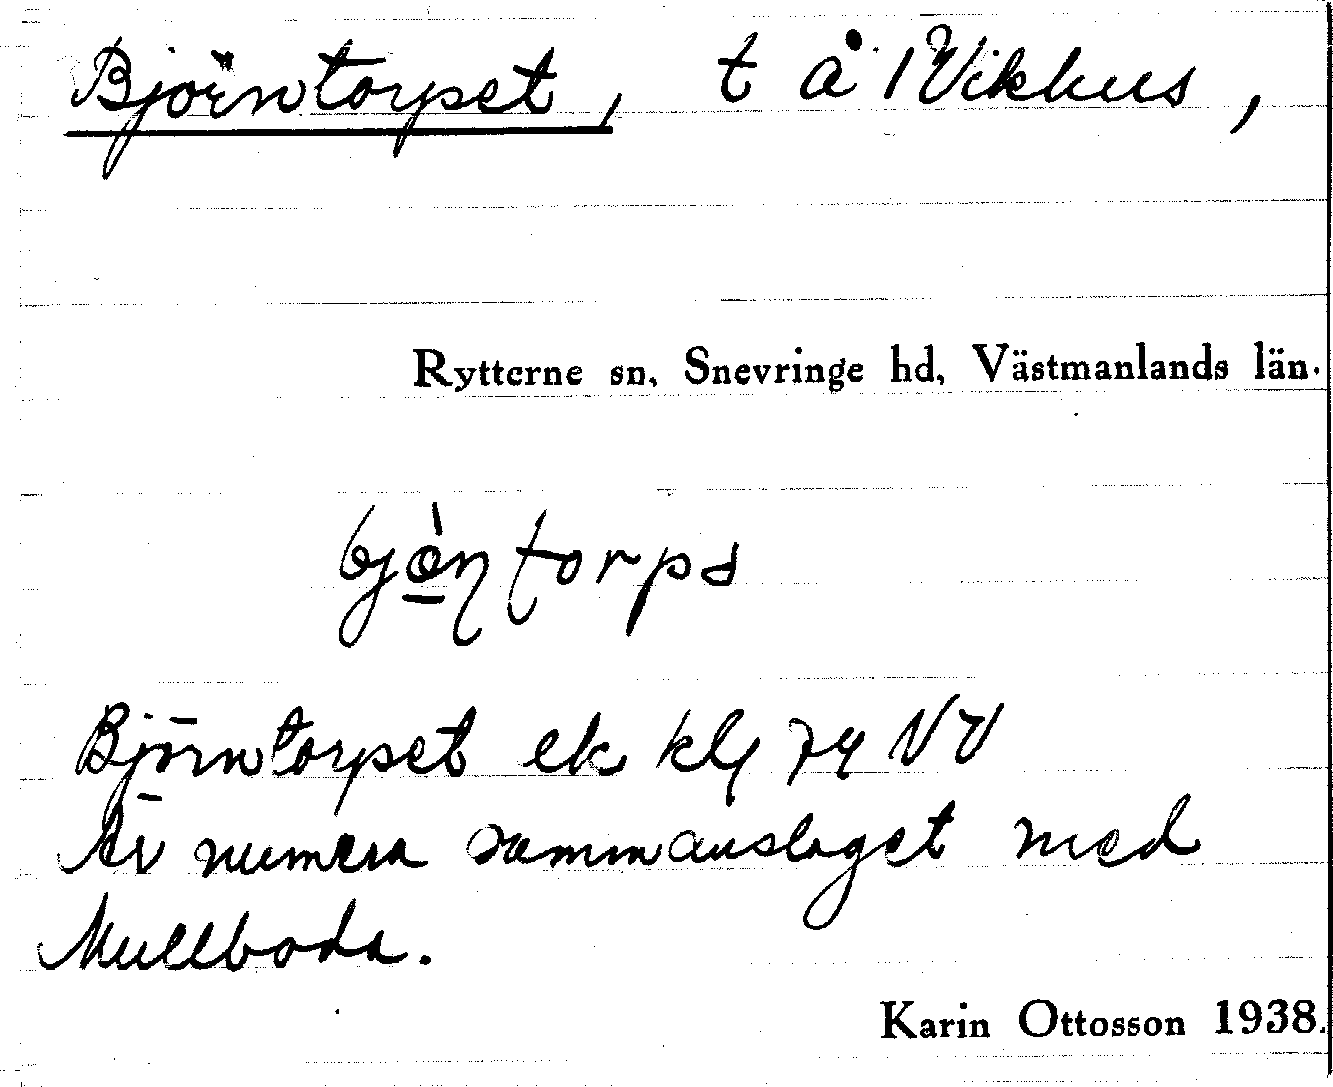 Björntorpet, t å 1 Vikhus,
Rytterne sn, Snevringe hd, Västmanlands län.
Björntorpet ek 74 NV
Är numera sammanslaget med
Mullboda.
Karin Ottosson 1938.